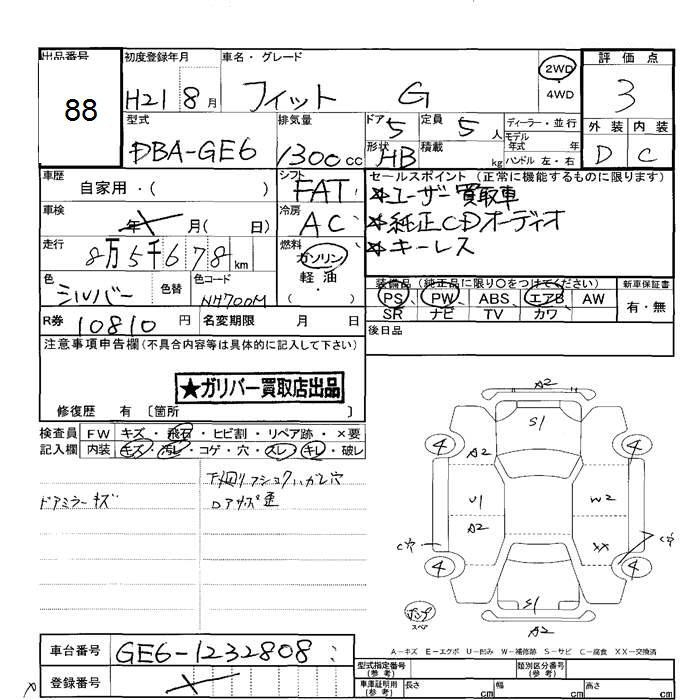 出品番号 初度登録年月 車名・グレード 2WD 評価点
88 H21 8月 フィット G 4WD 3
型式 排気量 ドア 定員 ディーラー・並行 外装 内装
DBA-GE6 1300cc 5 5人 モデル年式 年式 D C
形状 積載 kg ハンドル 左・右
HB
車歴 シフト セールスポイント (正常に機能するものに限ります)
自家用・( ) FAT ★ユーザー買取車
車検 冷房 ★純正CDオーディオ
年 月( 日) AC ★キーレス
走行 燃料
8万5千678km ガソリン
色 色替 色コード 軽油
シルバー NH700M ・( )
装備品 (純正品に限り○をつけてください) 新車保証書
PS、PW、ABS、エアB、AW 有・無
SR ナビ TV カワ
R券 10810円 名変期限 月 日 後日品
注意事項申告欄(不具合内容等は具体的に記入して下さい)
★ガリバー買取店出品
修復歴 有 〔箇所 〕
検査員 FW キズ・飛石・ヒビ割・リペア跡・×要
記入欄 内装 キズ・汚レ・コゲ・穴・スレ・キレ・破レ
ドアミラーキズ
A2
S1
4 A2 4
U1 W2
A2 XX
C穴
4 4
S1
A2
スペア
A-キズ E-エクボ U-凹み W-補修跡 S-サビ C-腐食 XX-交換済
車台番号 GE6-1232808
登録番号
型式指定番号(参考) 類別区分番号(参考)
車庫証明用(参考) 長さ cm 幅 cm 高さ cm